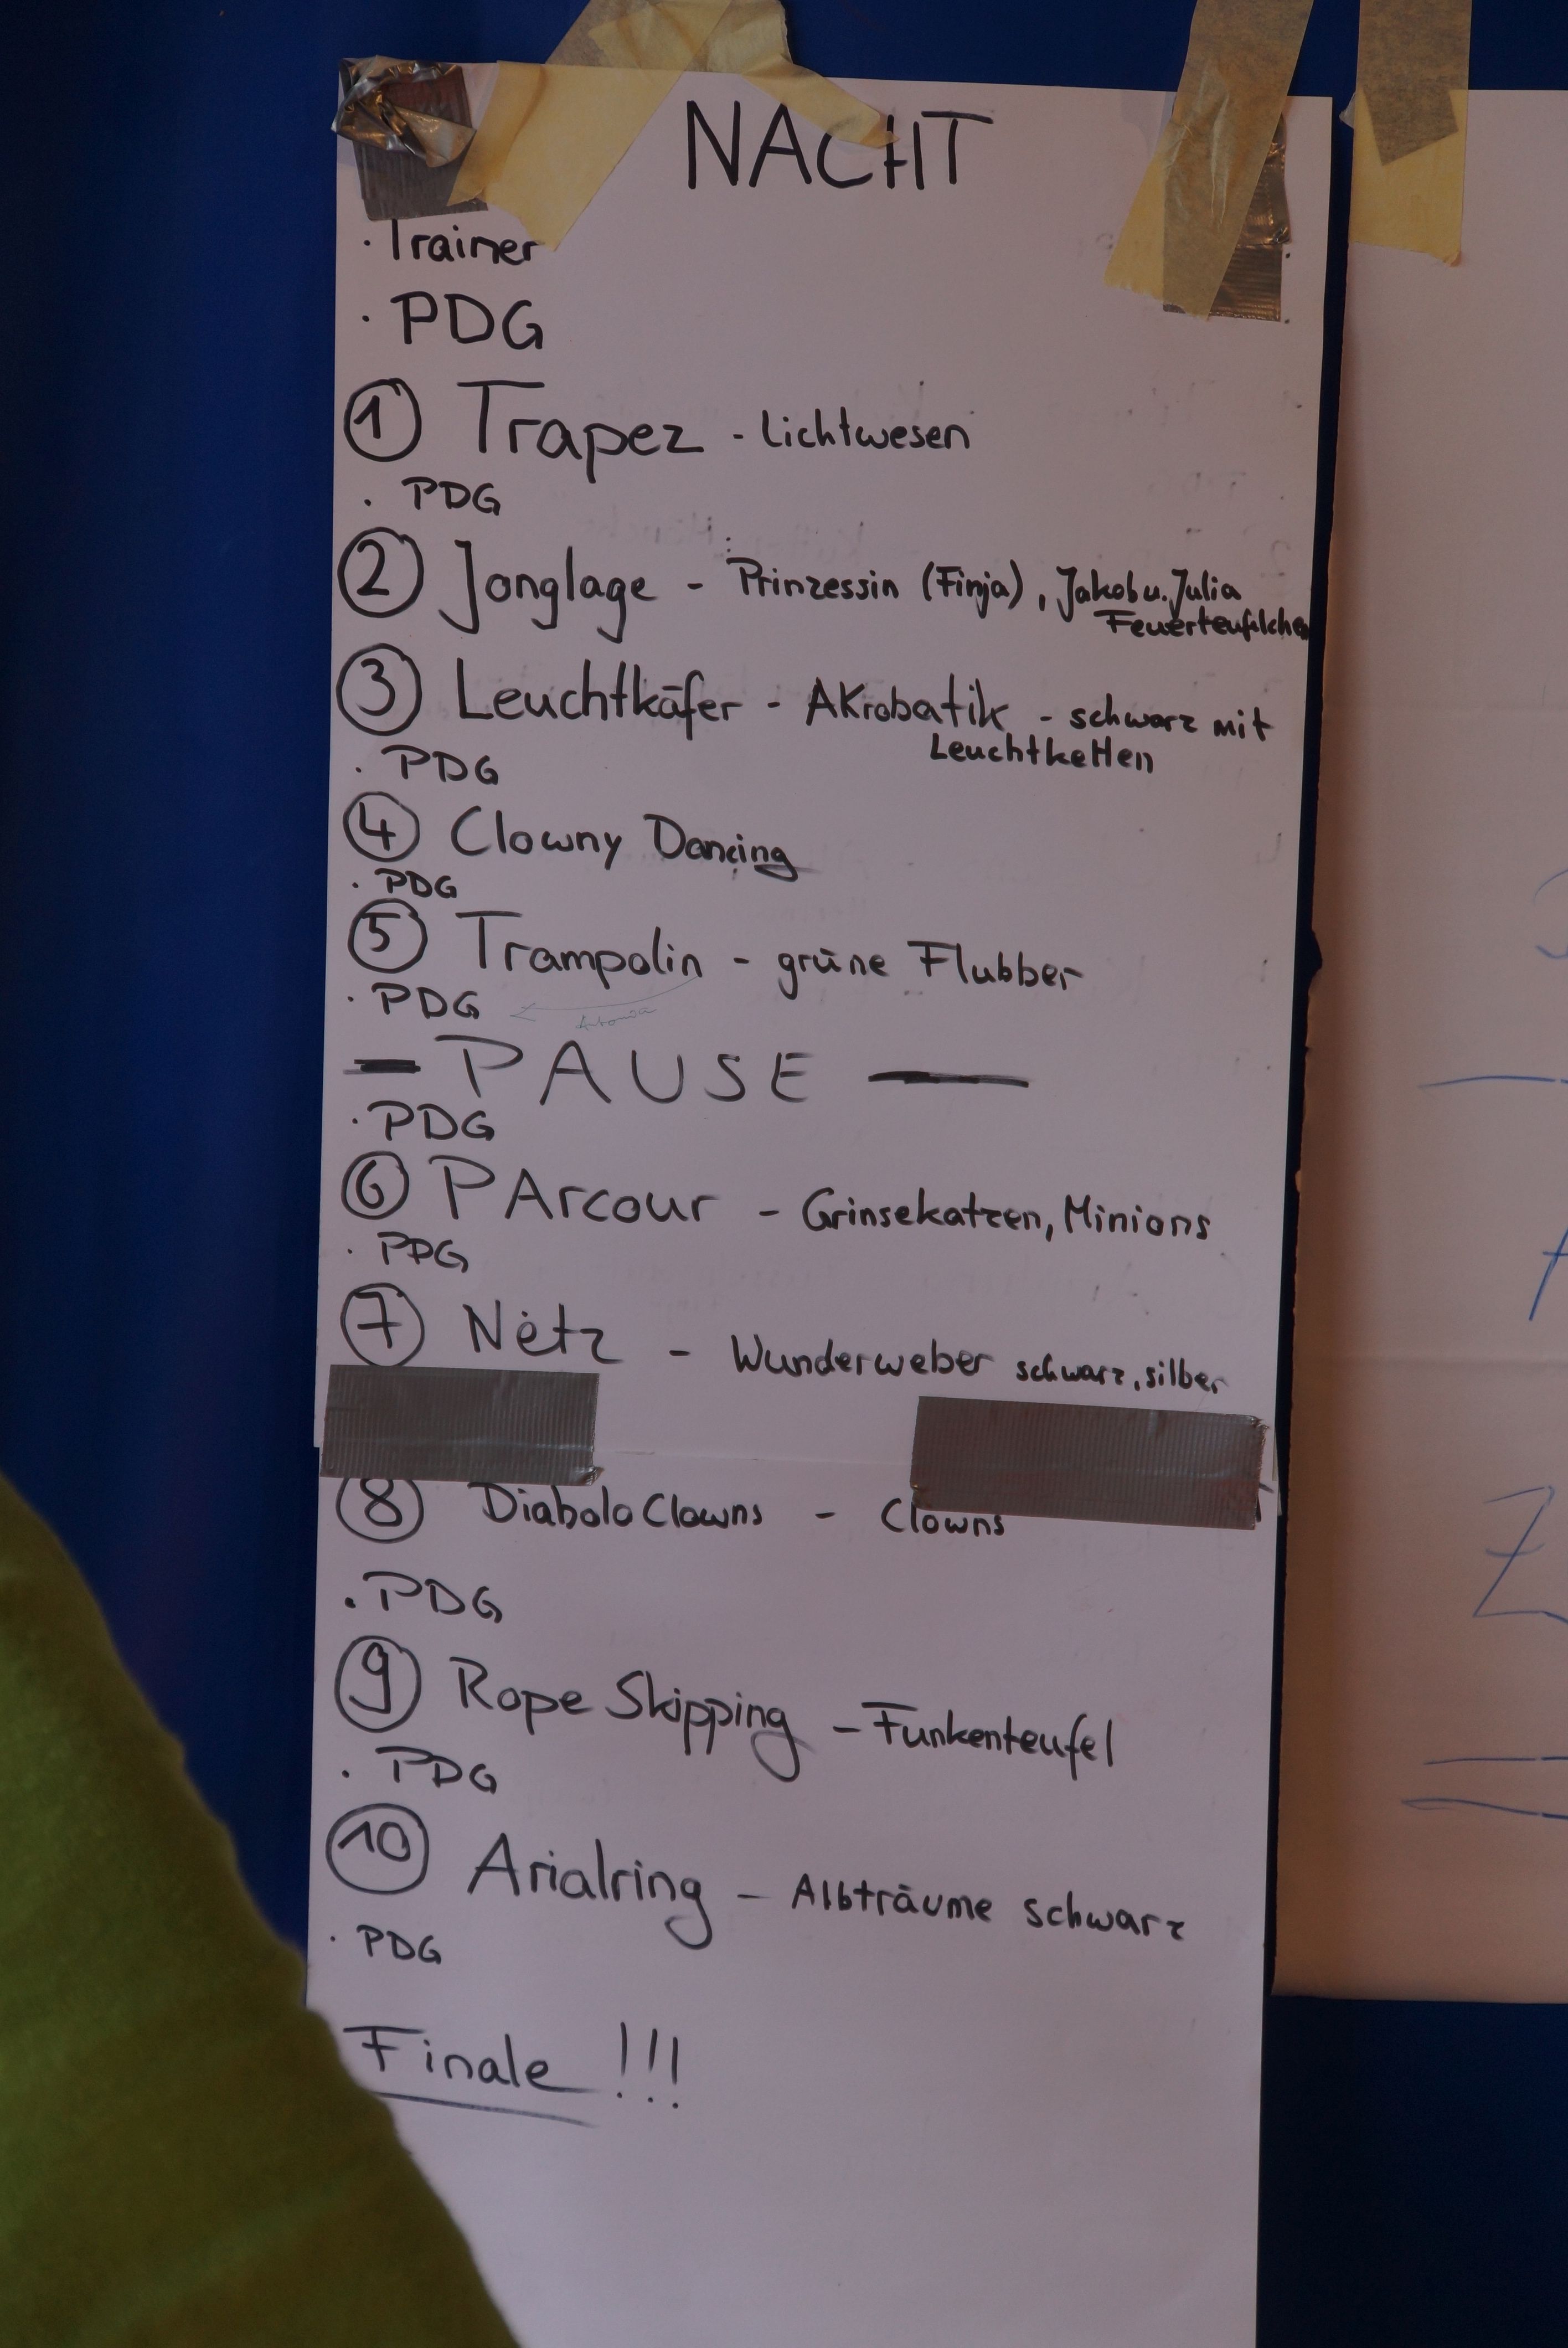 NACHT
· Trainer
· PDG
① Trapez - Lichtwesen
· PDG
② Jonglage - Prinzessin (Finja), Jakob u. Julia
Feuerteufelchen
③ Leuchtkäfer - AKrobatik - schwarz mit
Leuchtketten
· PDG
④ Clowny Dancing
· PDG
⑤ Trampolin - grüne Flubber
· PDG
Antonia
— PAUSE —
· PDG
⑥ PArcour - Grinsekatzen, Minions
· PDG
⑦ Netz - Wunderweber schwarz, silber
⑧ Diabolo Clowns - Clowns
· PDG
⑨ Rope Skipping - Funkenteufel
· PDG
⑩ Arialring - Albträume schwarz
· PDG
Finale !!!